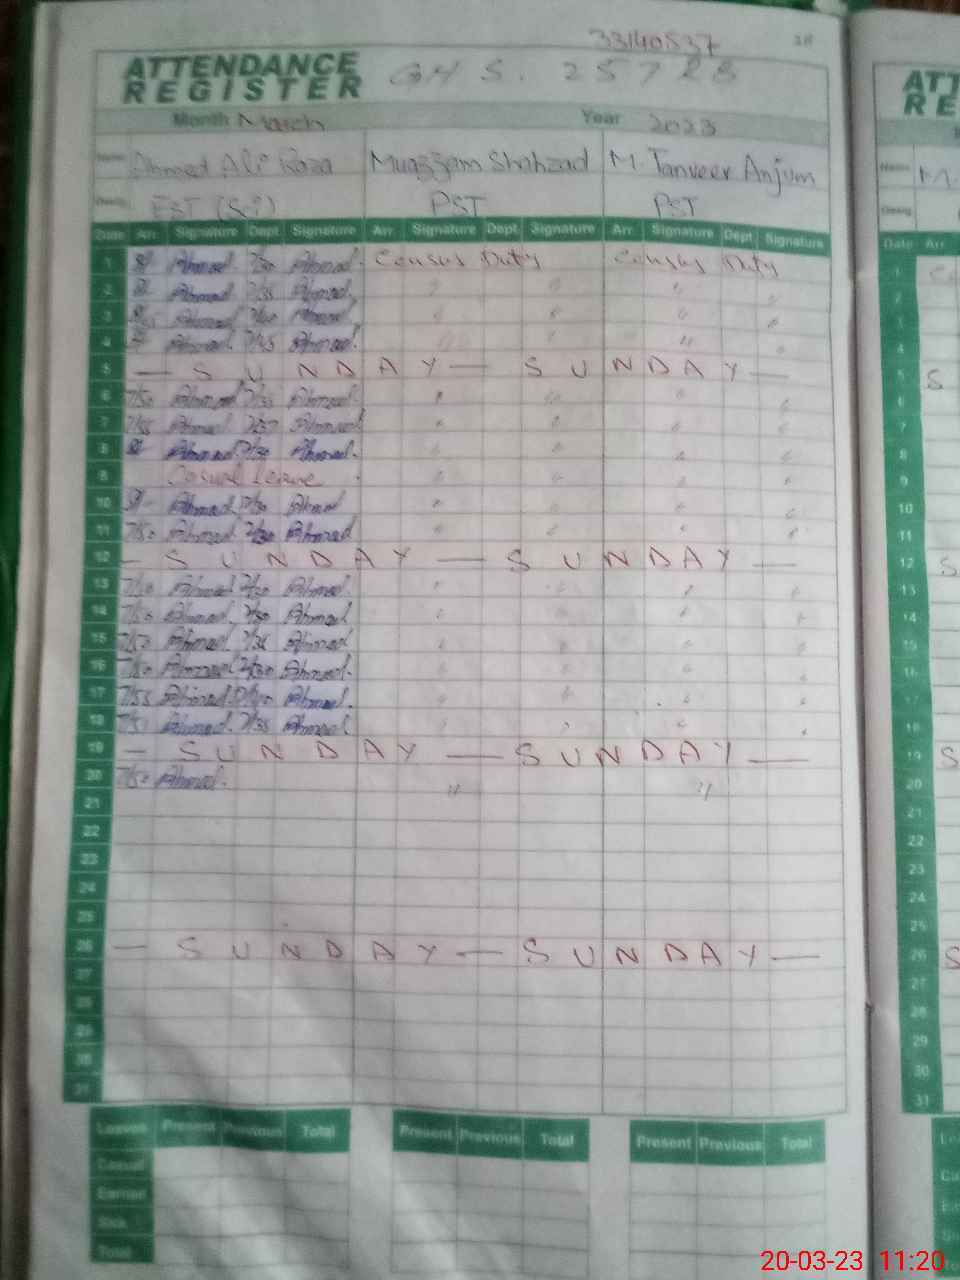 33140537
ATTENDANCE
REGISTER
G H S . 257 EB
Month March Year 2023
Name Ahmed Ali Raza Muazzam Shahzad M. Tanveer Anjum
PST PST
Date Arr Signature Dept Signature Arr Signature Dept Signature Arr Signature Dept Signature
1 Ahmad Ahmad Census Duty Census Duty
2 Ahmad Ahmad " " " "
3 Ahmad Ahmad " " " "
4 Ahmad Ahmad " " " "
5 — S U N D A Y — S U N D A Y —
6 7/50 Ahmad Ahmad " " " "
7 7/55 Ahmad Ahmad " " " "
8 Ahmad Ahmad " " " "
9 Casual Leave " " " "
10 Ahmad Ahmad " " " "
11 7/50 Ahmad Ahmad " " " "
12 — S U N D A Y — S U N D A Y —
13 7/50 Ahmad Ahmad " " " "
14 7/50 Ahmad Ahmad " " " "
15 7/50 Ahmad Ahmad " " " "
16 7/50 Ahmad Ahmad " " " "
17 7/55 Ahmad Ahmad " " " "
18 Ahmad Ahmad " " " "
19 — S U N D A Y — S U N D A Y —
20 7/50 Ahmad " "
21
22
23
24
25
26 — S U N D A Y — S U N D A Y —
27
28
29
30
31
Leaves Present Previous Total Present Previous Total Present Previous Total
Casual
Earned
Sick
Total
ATT
RE
Name M.
Desig
Date Arr
1
2
3
4
5 S
6
7
8
9
10
11
12 S
13
14
15
16
17
18
19 S
20
21
22
23
24
25
26 S
27
28
29
30
31
20-03-23 11:20